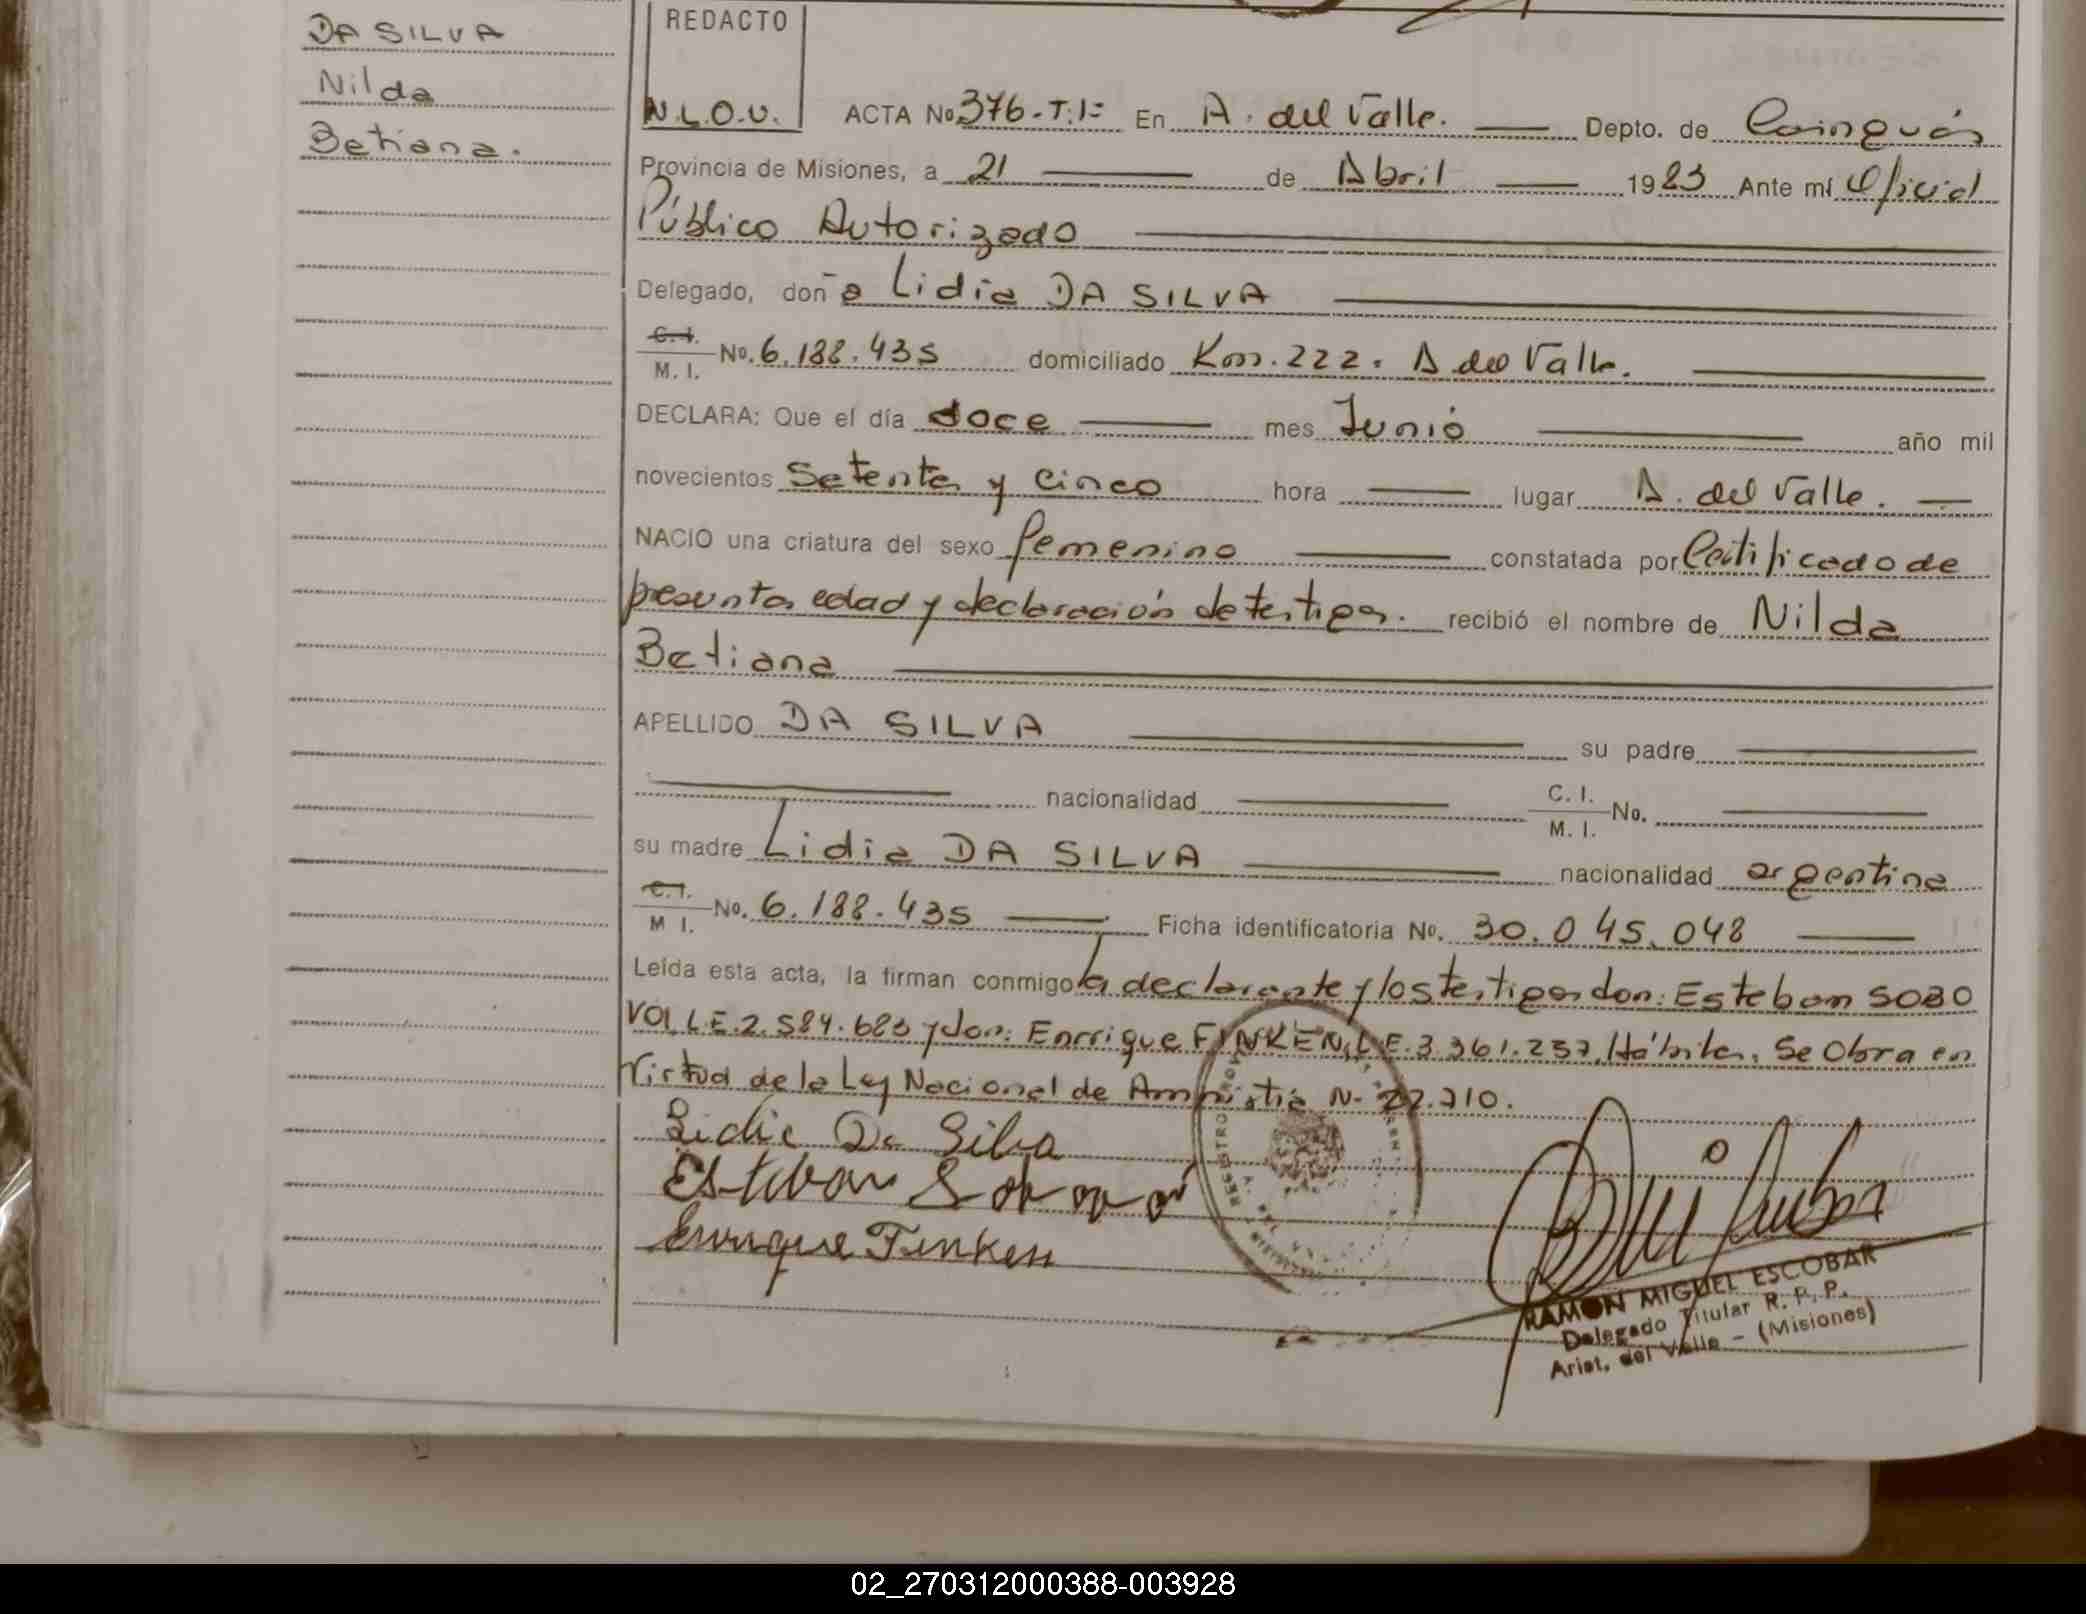 DA SILVA
Nilda
Betiana.
REDACTO
N.L.O.U.
ACTA No 376-T:1= En A. del Valle. Depto. de Cainguás
Provincia de Misiones, a 21 de Abril 1983 Ante mí Oficial
Público Autorizado
Delegado, doña Lidia DA SILVA
C. I. / M. I. No. 6.188.435 domiciliado Km. 222. A del Valle.
DECLARA: Que el día doce mes Junio año mil
novecientos Setenta y Cinco hora lugar A. del Valle.
NACIO una criatura del sexo femenino constatada por Certificado de
presunta edad y declaración de testigos. recibió el nombre de Nilda
Betiana
APELLIDO DA SILVA su padre
nacionalidad C. I. / M. I. No.
su madre Lidia DA SILVA nacionalidad argentina
C. I. / M I. No. 6.188.435 Ficha identificatoria No. 30.045.048
Leída esta acta, la firman conmigo la declarante y los testigos don: Esteban SOBO
VOI L.E. 2.584.683 y don: Enrrique FINKEN L.E. 3.361.257. Hábiles. Se Obra en
Virtud de la Ley Nacional de Amnistia N- 22.710.
Lidia Da Silva
Esteban
Enrrique Finken
REGISTRO
RAMON MIGUEL ESCOBAR
Delegado Titular R. P. P.
Arist. del Valle - (Misiones)
02_270312000388-003928